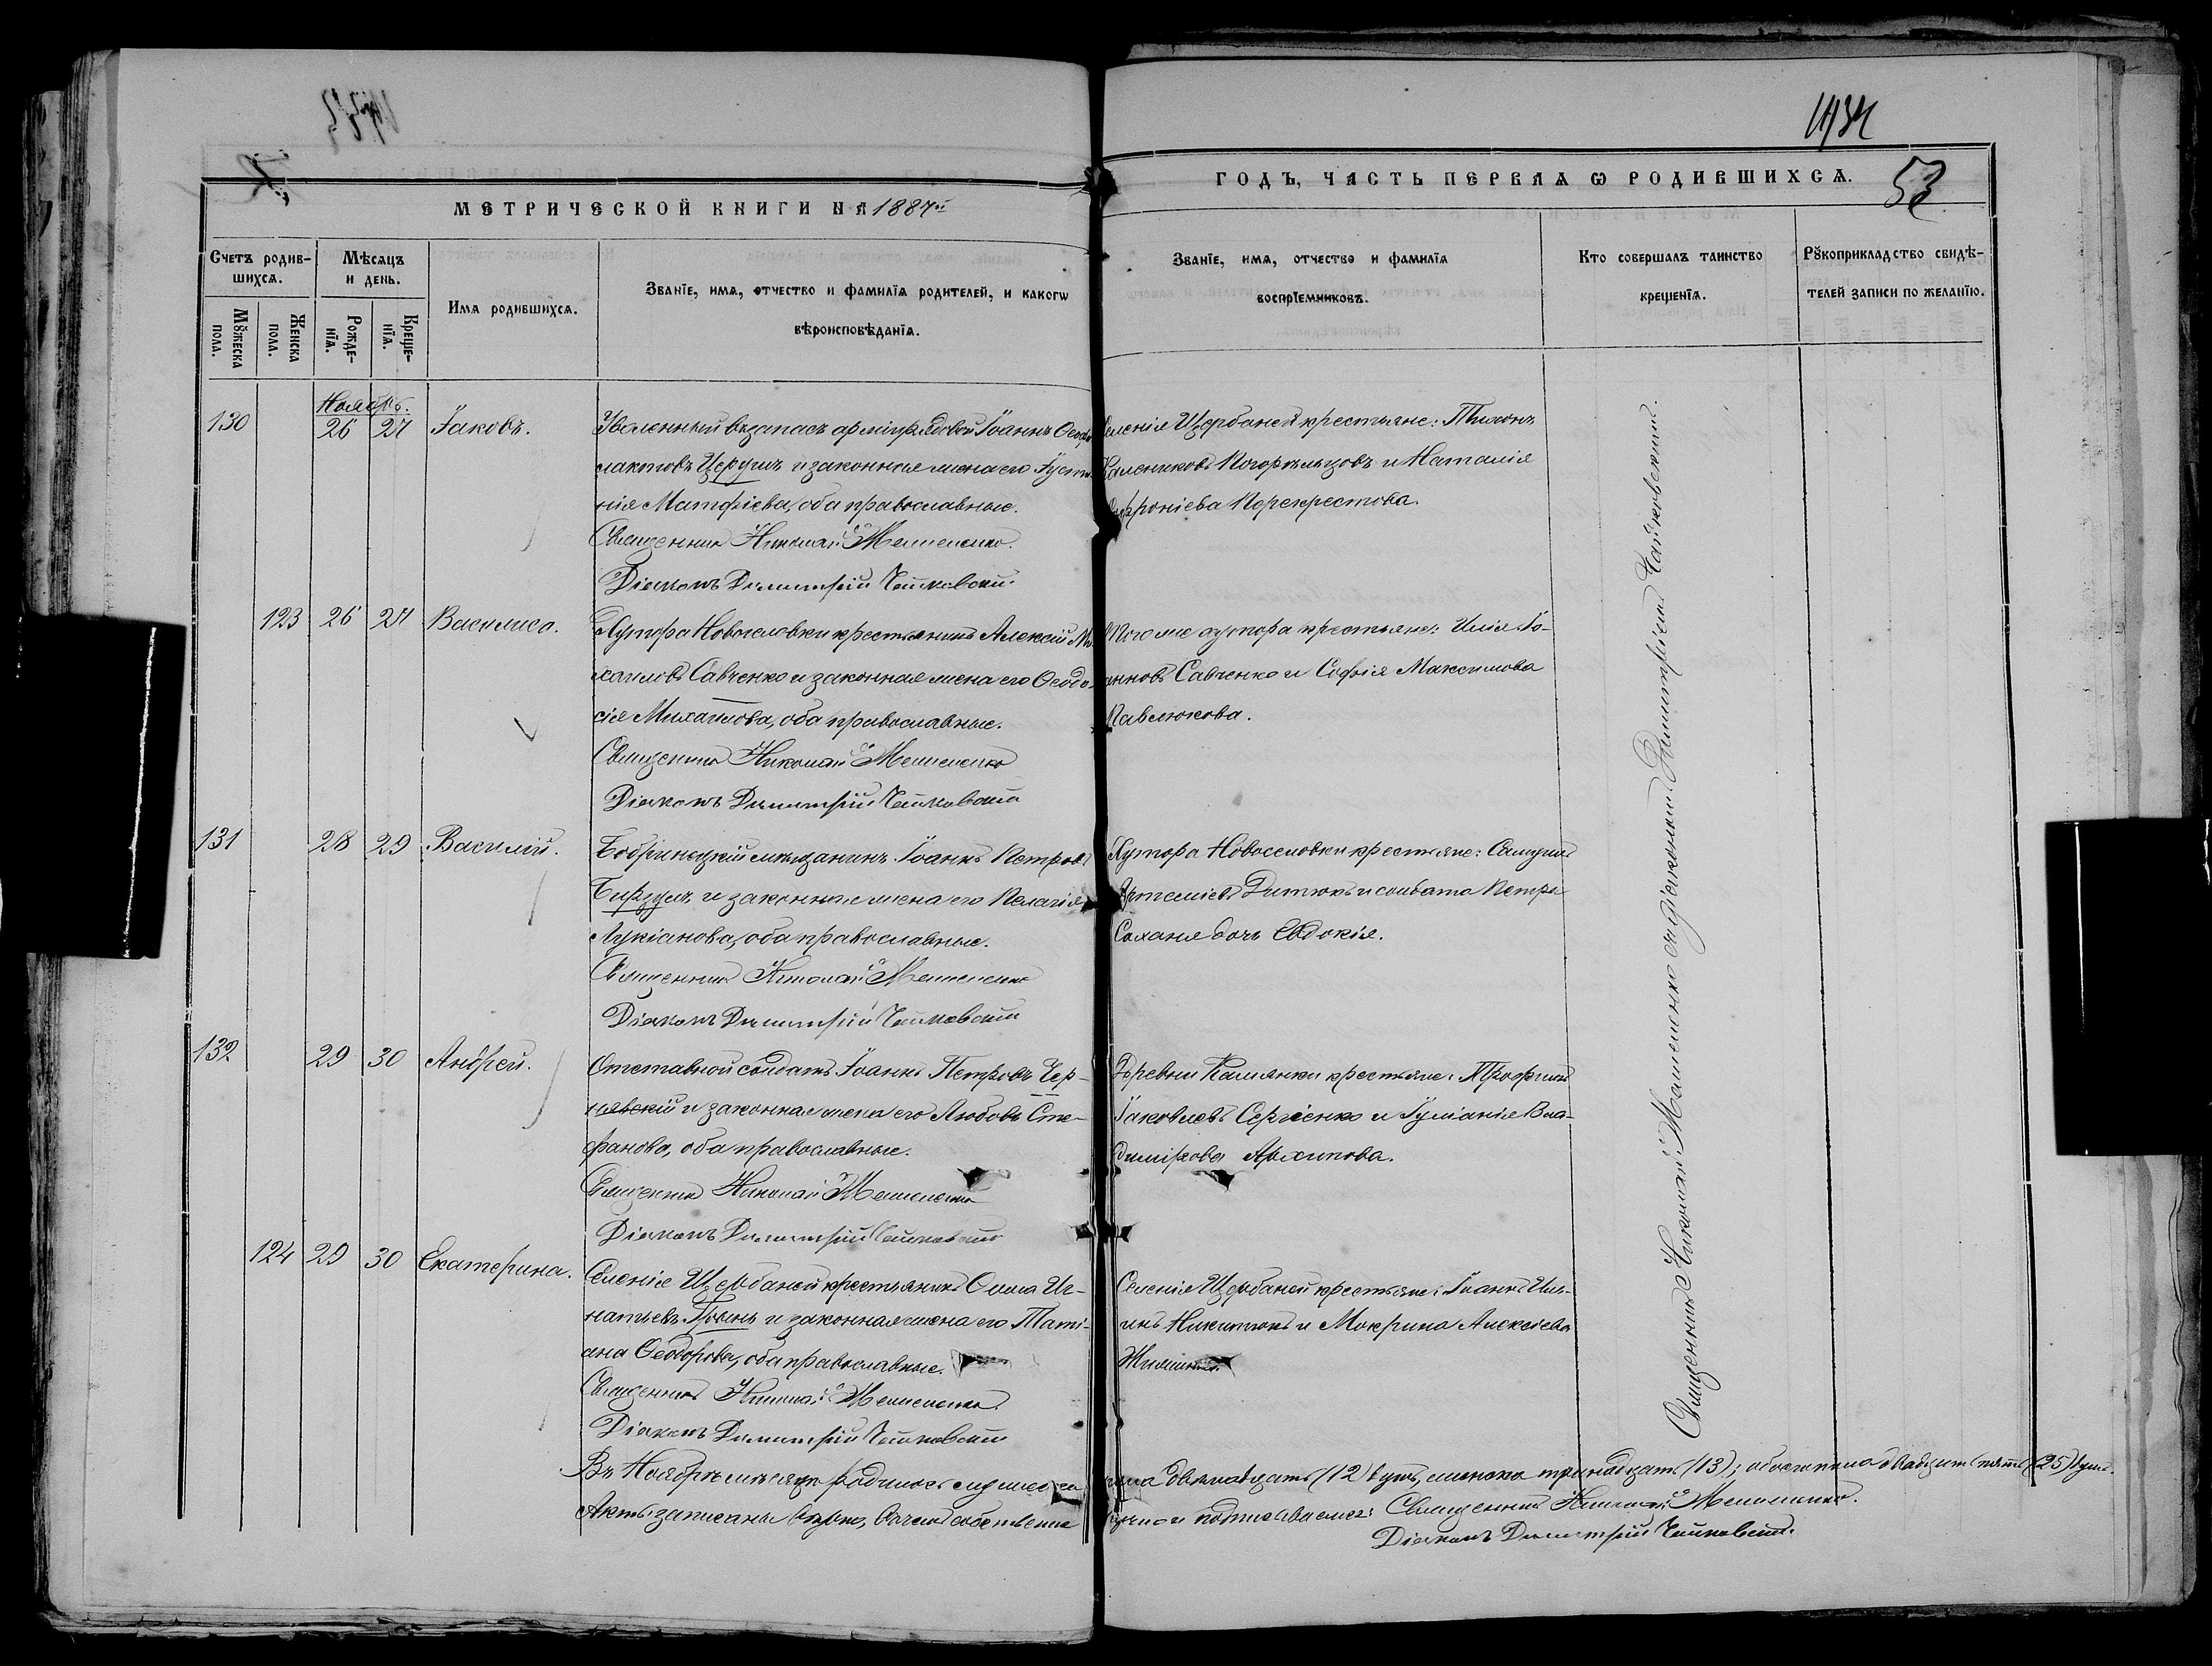 1434
53
МЕТРИЧЕСКОЙ КНИГИ НА 1887й
ГОДЪ, ЧАСТЬ ПЕРВАЯ Ѡ РОДИВШИХСѦ.
Счетъ родив-
шихсѧ.
Мѣсѧцъ
и день.
Имѧ родившихсѧ.
Званїе, имѧ, отчество и фамилїѧ родителей, и какогѡ
вѣроисповѣданїѧ.
Званїе, имѧ, отчество и фамилїѧ
воспрїемниковъ.
Кто совершалъ таинство
крещенїѧ.
Рꙋкоприкладство свидѣ-
телей записи по желанїю.
Мꙋжеска
пола.
Женска
пола.
Рожде-
нїѧ.
Креще-
нїѧ.
Ноябрь.
130 26 27 Іаковъ.
Уволенный въ запасъ арміи рядовой Іоаннъ Ѳеофи-
лактовъ Церулъ и законная жена его Іусти-
нія Матѳіева, оба православные.
Священникъ Николай Мелешенко.
Діаконъ Димитрій Чайковскій.
Селенія Щербаней крестьяне: Тихонъ
Каленниковъ Погорѣльцовъ и Наталія
Софроніева Перекрестова.
123 26 27 Василиса.
Хутора Новоселовки крестьянинъ Алексій Ми-
хаиловъ Савченко и законная жена его Ѳеодо-
сія Михаилова, оба православные.
Священникъ Николай Мелешенко
Діаконъ Димитрій Чайковскій
Того же хутора крестьяне: Илія Іо-
анновъ Савченко и Софія Максимова
Павлюкова.
131 28 29 Василій.
Бобринецкій мѣщанинъ Іоаннъ Петровъ
Бирзулъ и законная жена его Пелагія
Лукіанова, оба православные.
Священникъ Николай Мелешенко
Діаконъ Димитрій Чайковскій
Хутора Новоселовки крестьяне: Самуилъ
Артеміевъ Дитюкъ и солдата Петра
Саханя дочь Евдокія.
132 29 30 Андрей.
Отставной солдатъ Іоаннъ Петровъ Чер-
нявскій и законная жена его Любовь Сте-
фанова, оба православные.
Священникъ Николай Мелешенко
Діаконъ Димитрій Чайковскій
Деревни Камянки крестьяне: Трофимъ
Іаковлевъ Сергіенко и Іуліанія Вла-
димірова Архипова.
124 29 30 Екатерина.
Селенія Щербаней крестьянинъ Ѳома Иг-
натьевъ и законная жена его Таті-
ана Ѳеодорова, оба православные.
Священникъ Николай Мелешенко.
Діаконъ Димитрій Чайковскій
Селенія Щербаней крестьяне: Іоаннъ Иль-
инъ Никитюкъ и Мокрина Алексіева
Священникъ Николай Мелешенко съ діакономъ Димитріемъ Чайковскимъ.
Въ Ноябрѣ мѣсяцѣ родилось мужеска пола двѣнадцать (12) душъ, женска тринадцать (13); обоего пола двадцать пять (25) душъ.
Акты записаны вѣрно, въ чемъ собственно ручно и подписываемся: Священникъ Николай Мелешенко.
Діаконъ Димитрій Чайковскій.